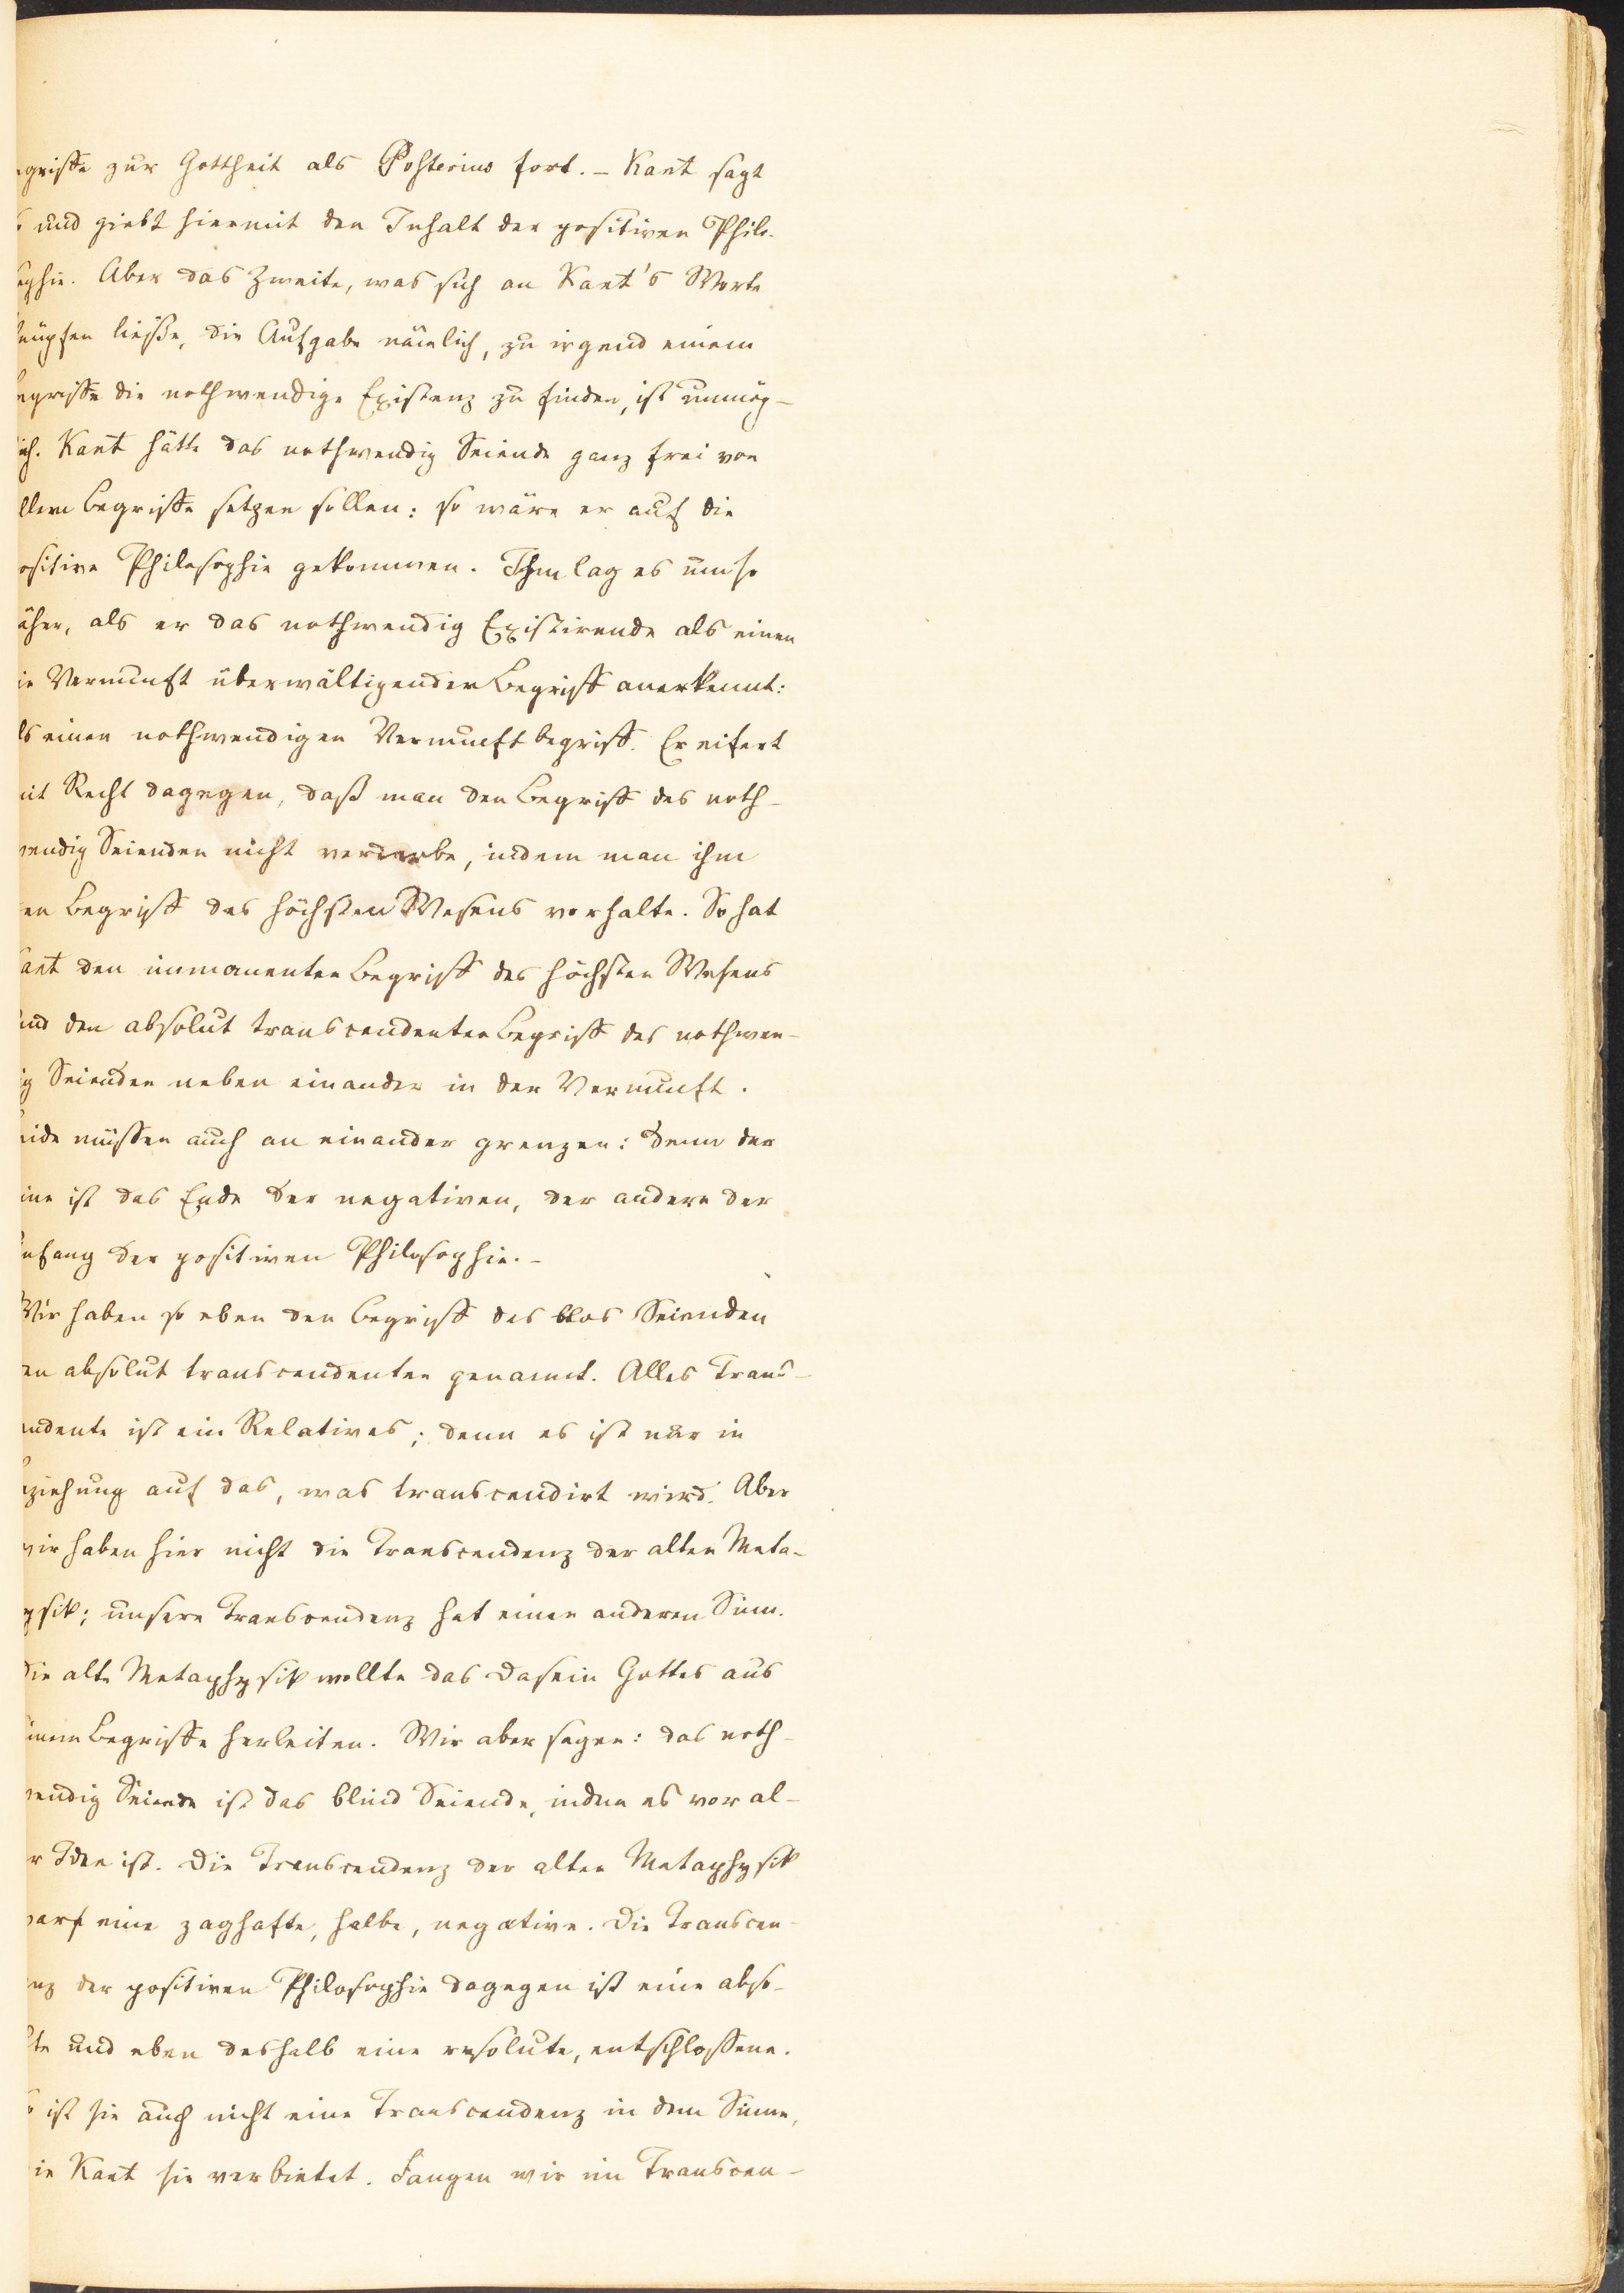 griffe zur Gottheit als Posterius fort. – Kant sagt
und giebt hiermit den Inhalt der positiven Philo-
ophie. Aber das Zweite, was sich an Kant's Worte
nüpfen ließe, die Aufgabe nämlich, zu irgend einem
egriffe die nothwendige Existenz zu finden, ist unmög-
ich. Kant hätte das nothwendig Seiende ganz frei von
llem Begriffe setzen sollen: so wäre er auf die
ositive Philosophie gekommen. Ihm lag es um so
äher, als er das nothwendig Existirende als einen
ie Vernunft überwältigenden Begriff anerkennt:
ls einen nothwendigen Vernunftbegriff. Er eifert
it Recht dagegen, daß man den Begriff des noth-
wendig Seienden nicht verderbe, indem man ihm
en Begriff des höchsten Wesens vorhalte. So hat
ant den immanenten Begriff des höchsten Wesens
und den absolut transcendenten Begriff des nothwen-
ig Seienden neben einander in der Vernunft.
eide müssen auch an einander grenzen: denn der
ine ist das Ende der negativen, der andere der
nfang der positiven Philosophie. –
Wir haben so eben den Begriff des blos Seienden
en absolut transcendenten genannt. Alles Trans-
endente ist ein Relatives; denn es ist nur in
eziehung auf das, was transcendirt wird. Aber
wir haben hier nicht die Transcendenz der alten Meta-
ysik; unsere Transcendenz hat einen anderen Sinn.
Die alte Metaphysik wollte das Dasein Gottes aus
inem Begriffe herleiten. Wir aber sagen: das noth-
wendig Seiende ist das blind Seiende, indem es vor al-
r Idee ist. Die Transcendenz der alten Metaphysik
war eine zaghafte, halbe, negative. Die Transcen-
nz der positiven Philosophie dagegen ist eine abso-
te und eben deshalb eine resolute, entschlossene.
ist sie auch nicht eine Transcendenz in dem Sinne,
ie Kant sie verbietet. Fangen wir im Transcen-